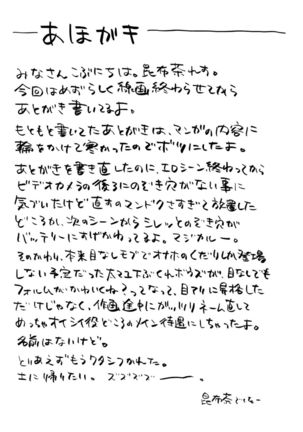 あほがき
みなさんこぶにちは。昆布茶れす。
今回はめずらしく線画終わらせてから
あとがき書いてるよ。
もともと書いてたあとがきは、マンガの内容に
輪をかけて寒かったのでボツにしたよ。
あとがきを書き直したのに、エロシーン終わってから
ビデオカメラの後ろにのぞき穴がない事に
気づいたけど直すのマンドクさすぎて放置した
どころか、次のシーンからシレッとのぞき穴が
バッテリーにすげかわってるよ。マジカルー。
そのかわり、本来目なしモブでオナホのくだりしか登場
しない予定だった
フォルムがかわいくねってなって、目アリに昇格した
だけじゃなく、作画途中にガッツリネーム直して
めっちゃオイシイ役どころのメイン待遇にしちゃったよ。
名前はないけど。
とりあえずもうワタシつかれた。
土に帰りたい。ズブズブ――。
昆布茶